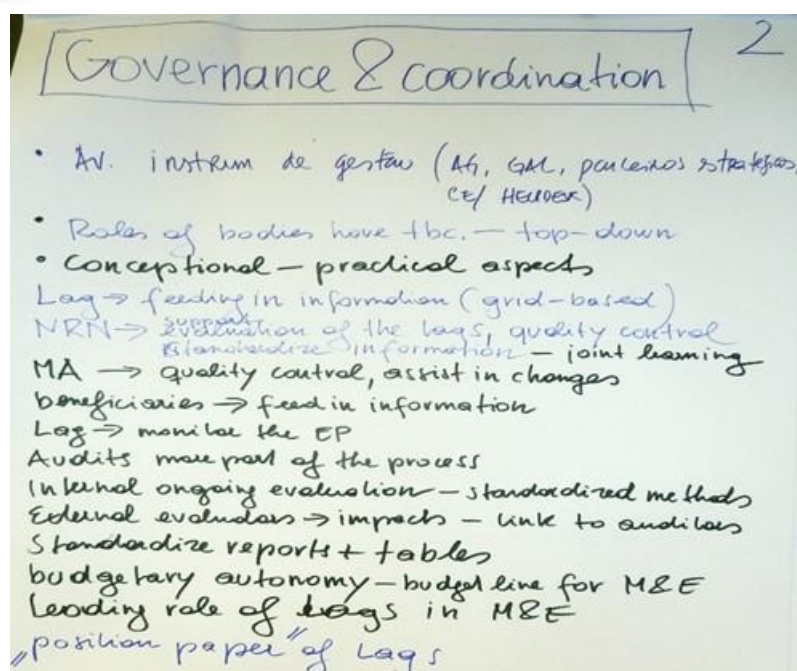 2
Governance & coordination
• Av. instrum de gestão (AG, GAL, parceiros estratégicos,
CE/ HELPDESK)
• Roles of bodies have tbc. — top-down
• Conceptional — practical aspects
Lag → feeding in information (grid-based)
NRN → support evaluation of the lags, quality control
standardize information — joint learning
MA → quality control, assist in changes
beneficiaries → feed in information
Lag → monitor the EP
Audits more part of the process
Internal ongoing evaluation — standardized methods
External evaluators → impacts — link to auditors
Standardize reports + tables
budgetary autonomy — budget line for M&E
Leading role of Lags in M&E
„position paper" of Lags